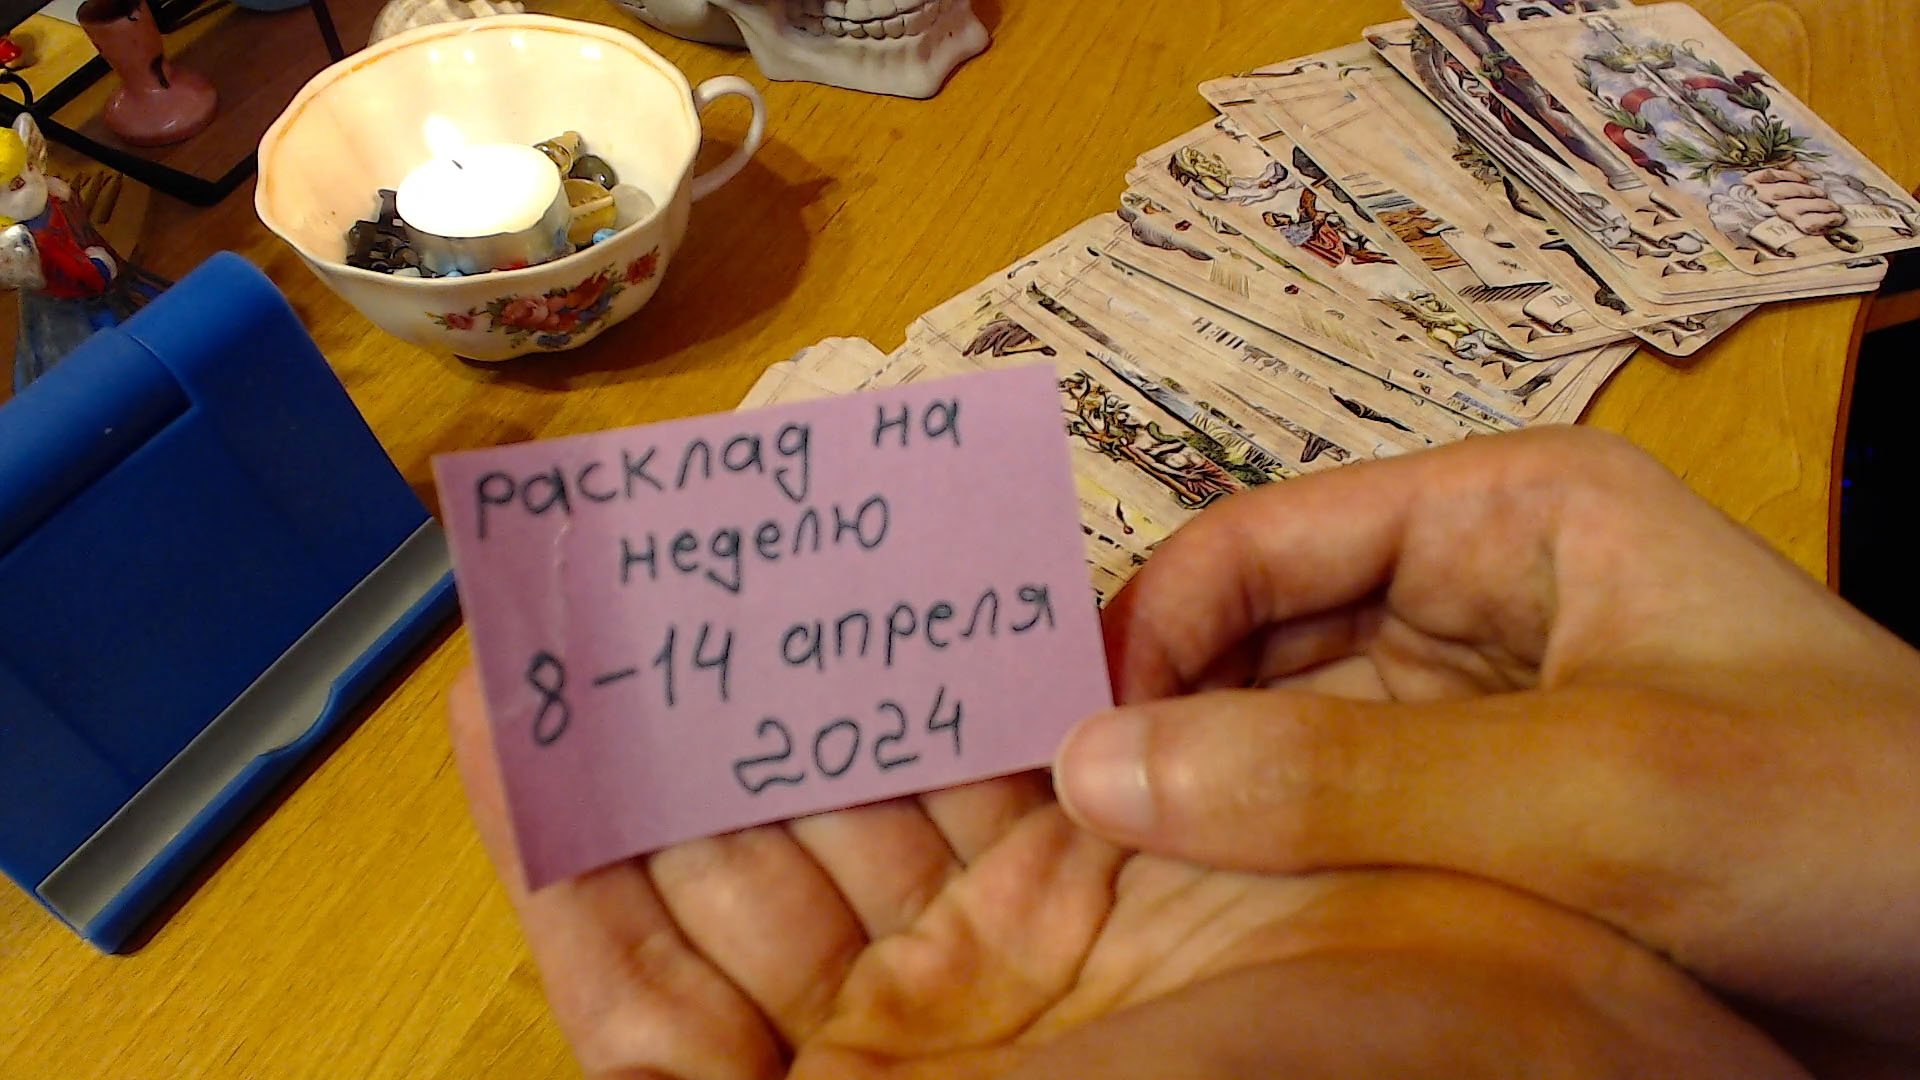 Расклад на
неделю
8-14 апреля
2024